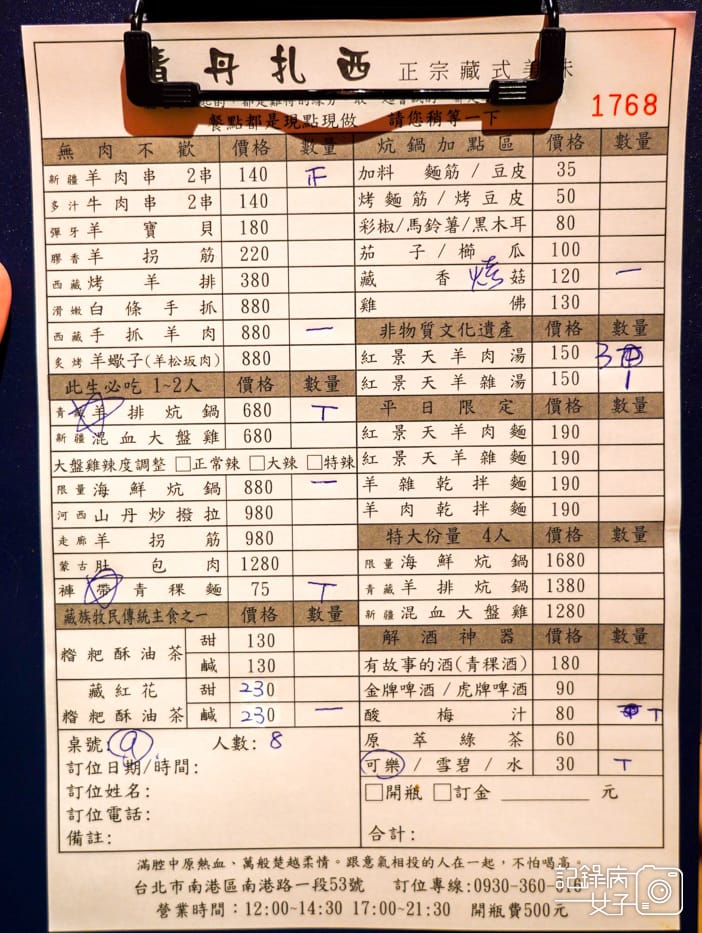 丹扎西 正宗藏式美味
1768
餐點都是現點現做 請您稍等一下
無肉不歡 價格 數量
新疆羊肉串 2串 140 正
多汁牛肉串 2串 140
彈牙羊寶貝 180
膠香羊拐筋 220
西藏烤羊排 380
滑嫩白條手抓 880
西藏手抓羊肉 880 一
炙烤羊蠍子(羊松坂肉) 880
此生必吃 1~2人 價格 數量
青藏羊排炕鍋 680 T
新疆混血大盤雞 680
大盤雞辣度調整 □正常辣 □大辣 □特辣
限量海鮮炕鍋 880 一
河西山丹炒撥拉 980
走廊羊拐筋 980
蒙古肚包肉 1280
褲帶青稞麵 75 T
藏族牧民傳統主食之一 價格 數量
糌粑酥油茶 甜 130
鹹 130
藏紅花 甜 230
糌粑酥油茶 鹹 230 一
桌號: 人數: 8
訂位日期/時間:
訂位姓名:
訂位電話:
備註:
炕鍋加點區 價格 數量
加料 麵筋/豆皮 35
烤麵筋/烤豆皮 50
彩椒/馬鈴薯/黑木耳 80
茄子/櫛瓜 100
藏香菇 120 一
雞佛 130
非物質文化遺產 價格 數量
紅景天羊肉湯 150 3
紅景天羊雜湯 150 1
平日限定 價格 數量
紅景天羊肉麵 190
紅景天羊雜麵 190
羊雜乾拌麵 190
羊肉乾拌麵 190
特大份量 4人 價格 數量
限量海鮮炕鍋 1680
青藏羊排炕鍋 1380
新疆混血大盤雞 1280
解酒神器 價格 數量
有故事的酒(青稞酒) 180
金牌啤酒/虎牌啤酒 90
酸梅汁 80 T
原萃綠茶 60
可樂/雪碧/水 30 T
□開瓶 □訂金 ______ 元
合計:
滿腔中原熱血、萬般楚越柔情。跟意氣相投的人在一起,不怕喝高。
台北市南港區南港路一段53號 訂位專線:0930-360-
營業時間:12:00~14:30 17:00~21:30 開瓶費500元
記錄病
女子